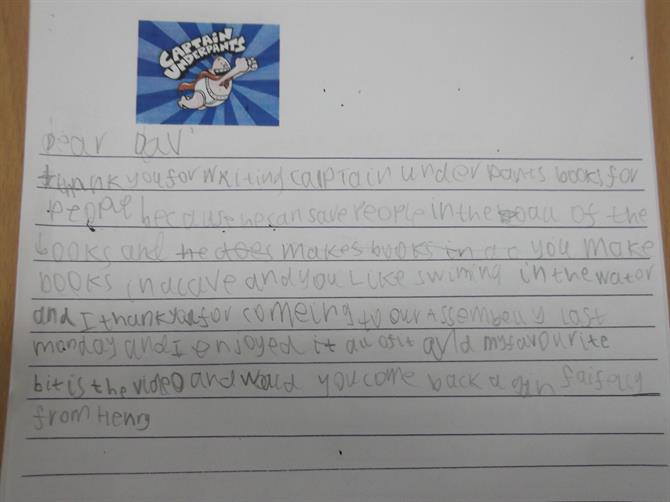 CAPTAIN
UNDERPANTS
Dear Dav
thank you for writing captain under pants books for
people because he can save People in the of the
books and he does makes books in do you make
books in a cave and you Like swiming in the water
and I thank you for comeing to our Assembely last
monday and I enjoyed it all of it and my favourite
bit is the video and would you come back agin
from Henry